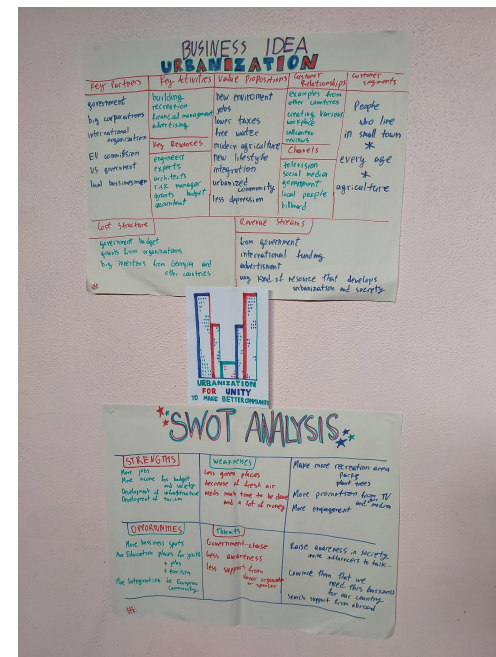 BUSINESS IDEA
URBANIZATION
Key Partners
government
big corporations
international
organization
EU commission
US government
local businessmen
Key Activities
building
recreation
financial management
advertising
Key Resources
engineers
experts
architects
risk manager
grants budget
accountant
Value Propositions
new enviroment
jobs
lower taxes
free water
modern agriculture
new lifestyle
integration
urbanized
community
less depression
Customer
Relationships
examples from
other countries
creating various
workplace
reviews
Chanels
television
social media
government
local people
bilboard
Customer
segments
People
who live
in small town
*
every age
*
agriculture
Cost Structure
government budget
grants from organizations
big investors from Georgia and
other countries
Revenue Streams
from government
international funding
advertisment
any kind of resource that develops
urbanization and society
URBANIZATION
FOR UNITY
TO MAKE BETTER COMMUNITY
SWOT ANALYSIS
STRENGTHS
More jobs
More income for budget
and society
Development of infrastructure
Development of tourism
Weaknesses
Less green places
decrease of fresh air
needs much time to be done
and a lot of money
Make more recreation area
parks
plant trees
More promotions from TV
and media
More engagement
OPPORTUNITIES
More business spots
Education places for youth
+ jobs
+ tourism
More Integration to European
Community
Threats
Government
Less awareness
less support from
or sponsor
Raise awareness in society
influencers to talk...
Convince them that we
need this business
for our country
Search support from abroad